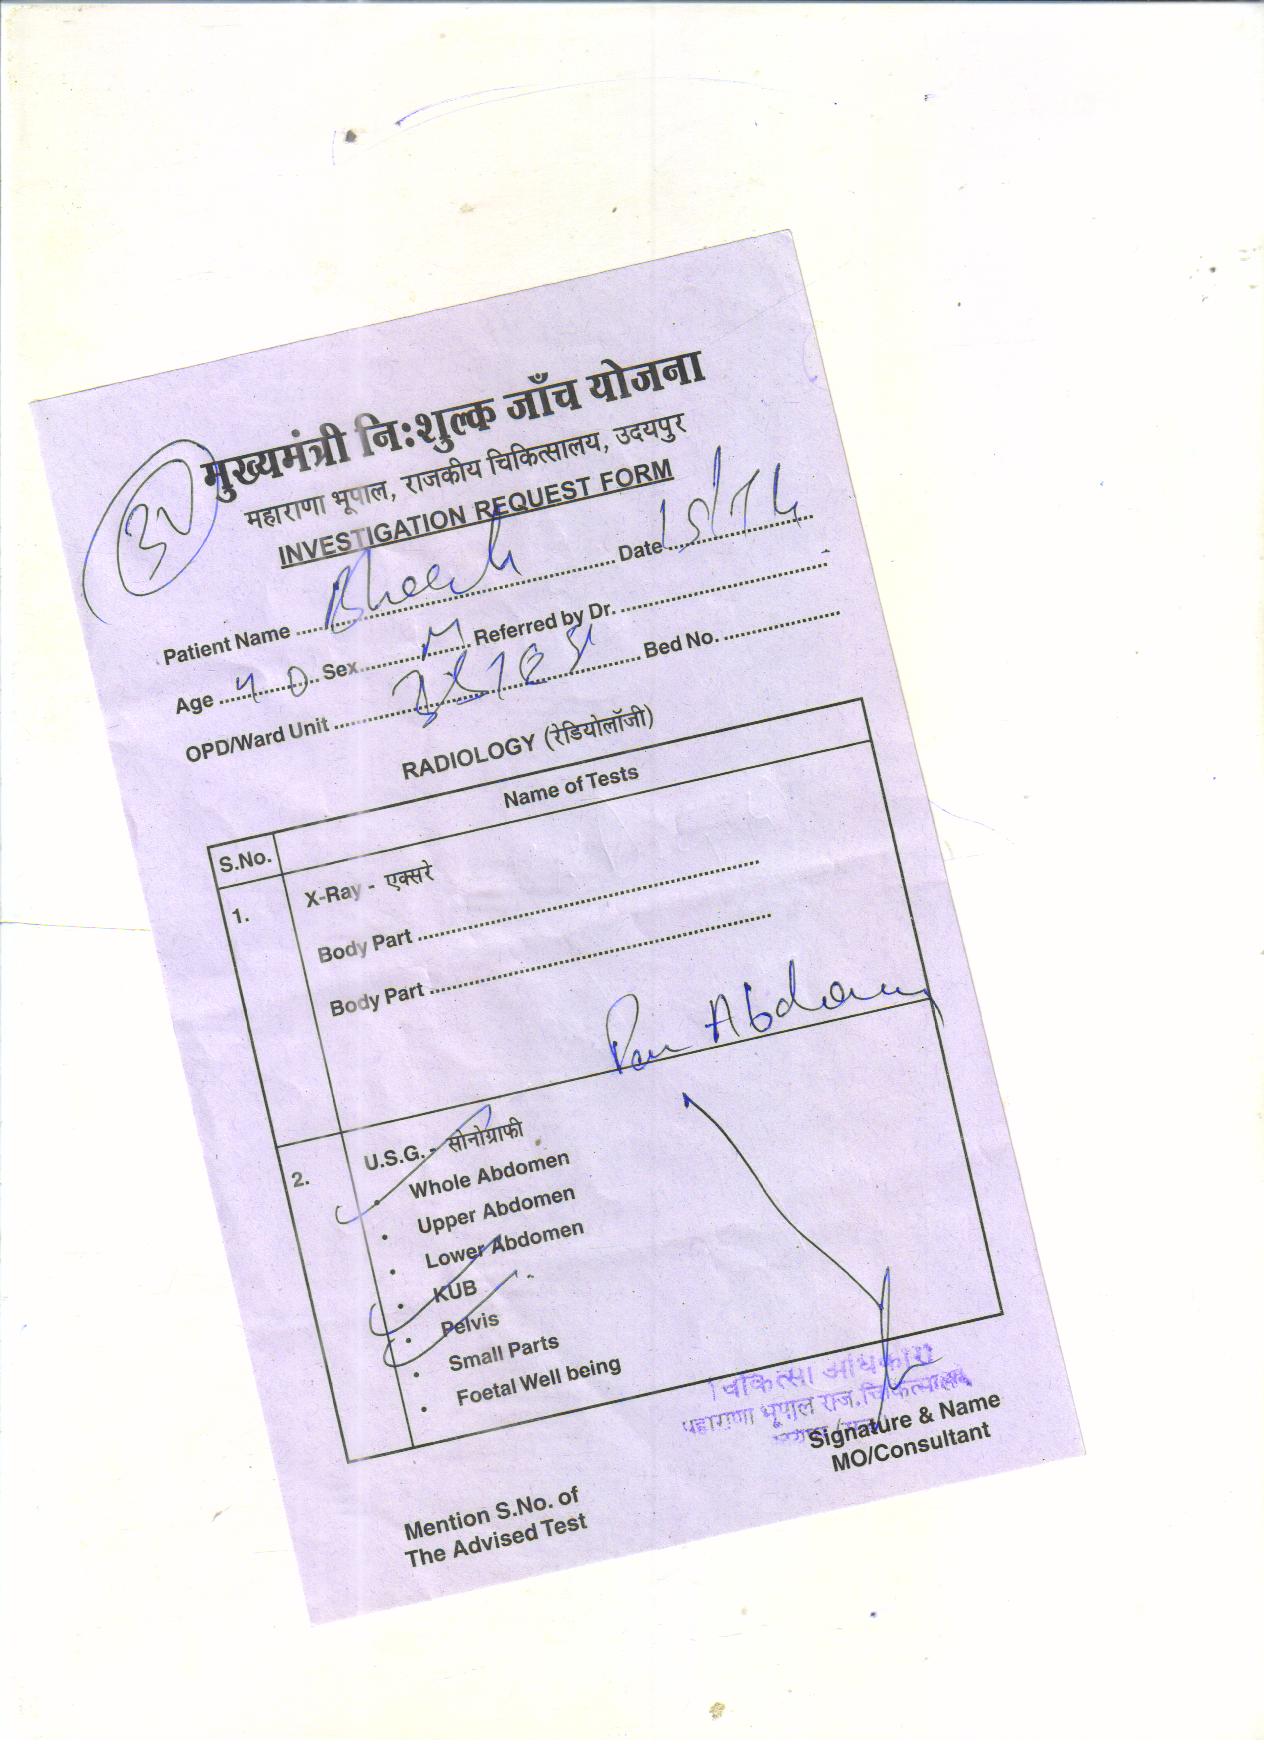 मुख्यमंत्री निःशुल्क जाँच योजना
महाराणा भूपाल, राजकीय चिकित्सालय, उदयपुर
INVESTIGATION REQUEST FORM
30
Patient Name Date
Age 40 Sex M Referred by Dr.
OPD/Ward Unit Bed No.
RADIOLOGY (रेडियोलॉजी)
S.No. Name of Tests
1. X-Ray - एक्सरे
Body Part
Body Part
Abdomen
2. U.S.G. - सोनोग्राफी
• Whole Abdomen
• Upper Abdomen
• Lower Abdomen
• KUB
• Pelvis
• Small Parts
• Foetal Well being
चिकित्सा अधिकारी
महाराणा भूपाल राज. चिकित्सालय
Signature & Name
MO/Consultant
Mention S.No. of
The Advised Test